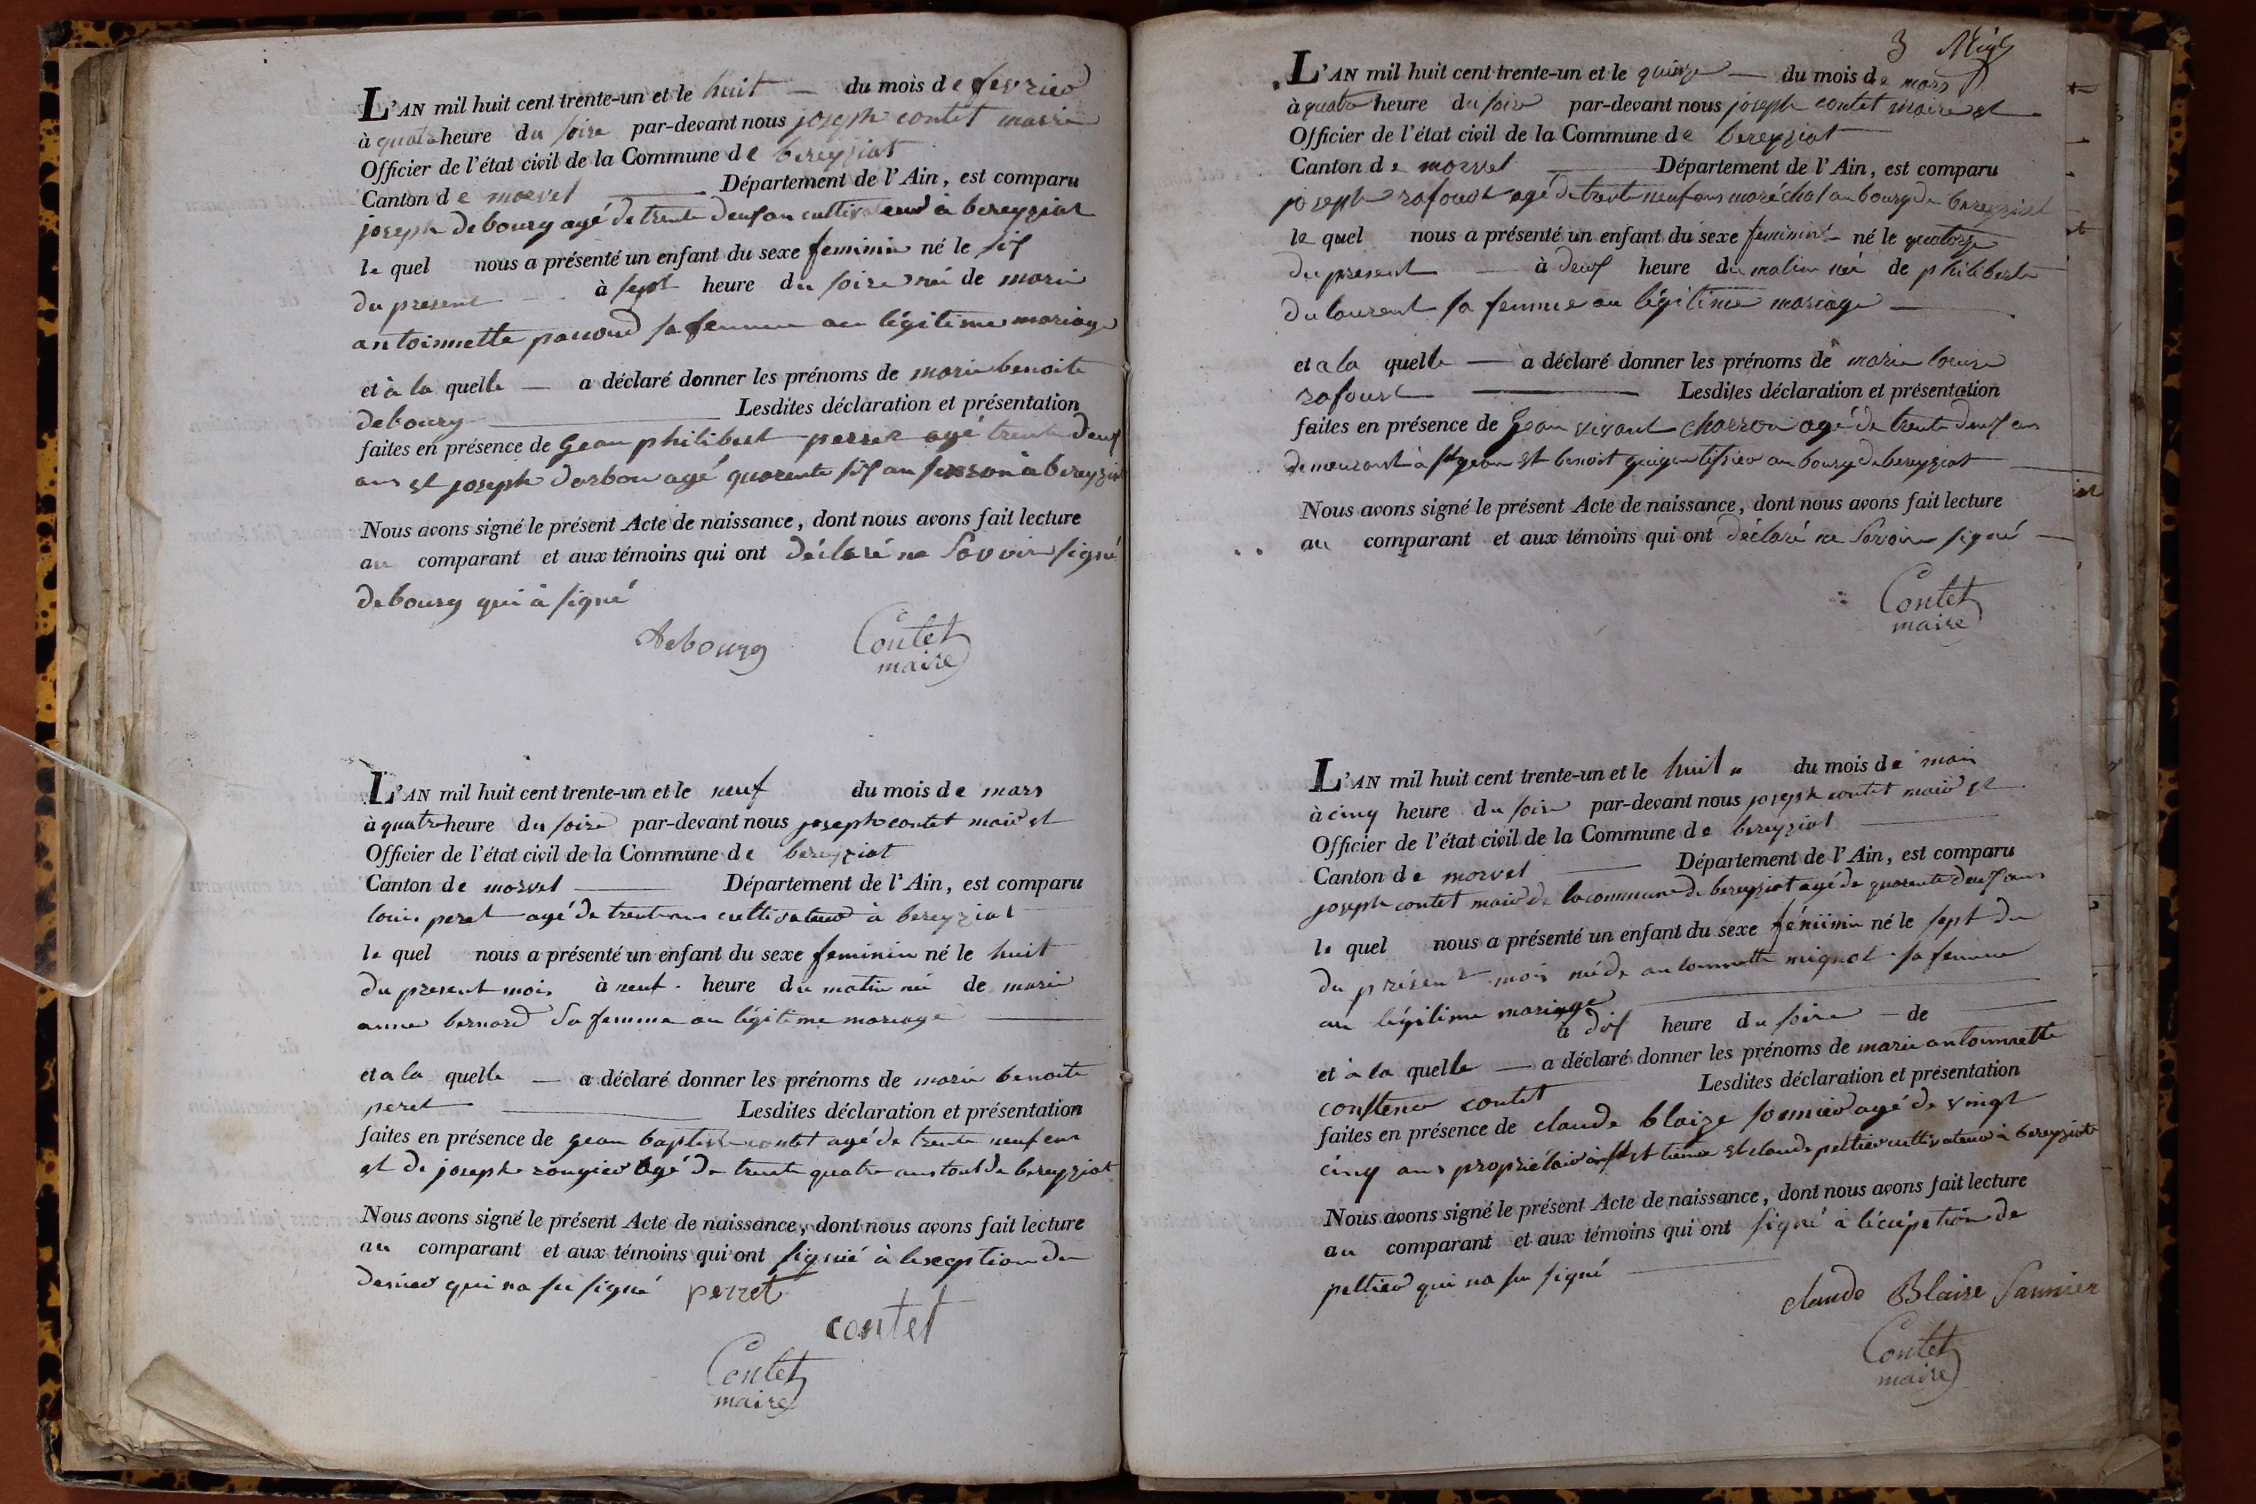 L'AN mil huit cent trente-un et le huit — du mois de fevrier
à quatre heure du soire par-devant nous joseph contet maire
Officier de l'état civil de la Commune de bereyziat
Canton de morvel — Département de l'Ain, est comparu
joseph debourg agé de trente deuf an cultivateur à bereyziat
le quel nous a présenté un enfant du sexe feminin né le sif
du present à sept heure du soire né de marie
antoinette pauoud sa femme au légitime mariage
et à la quelle — a déclaré donner les prénoms de marie benoite
debourg — Lesdites déclaration et présentation
faites en présence de Gean philibert perret agé trente deuf
ans et joseph darbon agé quarente sif an à bereyziat
Nous avons signé le présent Acte de naissance, dont nous avons fait lecture
au comparant et aux témoins qui ont déclaré ne Savoir signé
debourg qui à signé
debourg Contet
maire
L'AN mil huit cent trente-un et le neuf du mois de mars
à quatre heure du soire par-devant nous joseph contet maire et
Officier de l'état civil de la Commune de bereyziat
Canton de morvel — Département de l'Ain, est comparu
louis peret agé de trente ans cultivateur à bereyziat
le quel nous a présenté un enfant du sexe feminin né le huit
du present mois à neuf heure du matin né de marie
anne bernard Sa femme au légitime mariage —
et a la quelle — a déclaré donner les prénoms de marie benoite
peret — Lesdites déclaration et présentation
faites en présence de gean baptiste contet agé de trente neuf ans
et de joseph rougier agé de trente quatre ans tout de bereyziat
Nous avons signé le présent Acte de naissance, dont nous avons fait lecture
au comparant et aux témoins qui ont signé à lexception du
dernier qui na su signé perret
contet
Contet
maire
3
L'AN mil huit cent trente-un et le quinze — du mois de mars
à quatre heure du soire par-devant nous joseph contet maire et
Officier de l'état civil de la Commune de bereyziat
Canton de morvel — Département de l'Ain, est comparu
joseph rafourt agé de trente neuf ans maréchal au bourg de bereyziat
le quel nous a présenté un enfant du sexe feminin — né le quatorze
du present — à deuf heure du matin né de philiberte
dulaurent sa femme au légitime mariage —
et a la quelle — a déclaré donner les prénoms de marie louise
rafourt — Lesdites déclaration et présentation
faites en présence de Gean vivant charron agé de trente deuf ans
demeurant à st gean et benoit guigue tissier au bourg de bereyziat —
Nous avons signé le présent Acte de naissance, dont nous avons fait lecture
au comparant et aux témoins qui ont déclaré ne Savoir signé —
Contet
maire
L'AN mil huit cent trente-un et le huit du mois de mai
à cinq heure du soire par-devant nous joseph contet maire et
Officier de l'état civil de la Commune de bereyziat
Canton de morvel — Département de l'Ain, est comparu
joseph contet maire de la commune de bereyziat agé de quarente deuf ans
le quel nous a présenté un enfant du sexe féminin né le sept du
du présent mois né de antoinette mignot sa femme
au légitime mariage —
à dif heure du soire — de
et à la quelle — a déclaré donner les prénoms de marie antoinnette
constence contet Lesdites déclaration et présentation
faites en présence de claude blaize sounier agé de vingt
cinq ans propriétaire à et claude peltier cultivateur à bereyziat
Nous avons signé le présent Acte de naissance, dont nous avons fait lecture
au comparant et aux témoins qui ont signé à lécéption de
peltier qui na su signé —
claude Blaise Saunier
Contet
maire